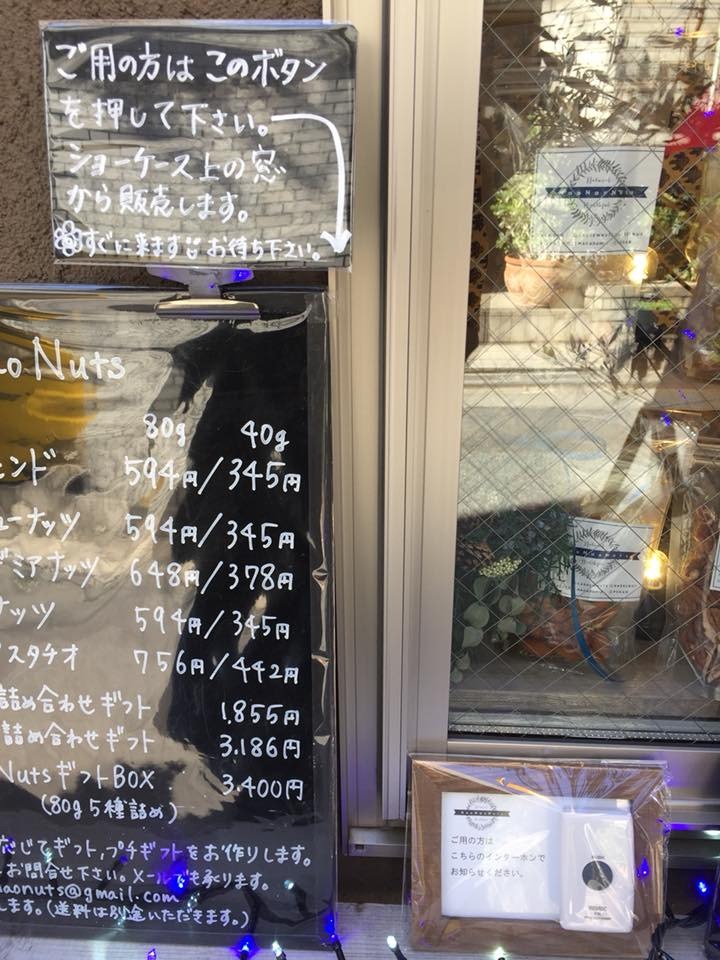 ご用の方は このボタン
を押して下さい。
ショーケース上の窓
から販売します。
すぐに来ます お待ち下さい。
o Nuts
80g 40g
ンド 594円/345円
ューナッツ 594円/345円
デミアナッツ 648円/378円
ナッツ 594円/345円
スタチオ 756円/442円
詰め合わせギフト 1.855円
詰め合わせギフト 3.186円
Nuts ギフトBOX 3.400円
(80g 5種詰め)
じてギフト,プチギフトをお作りします。
お問合せ下さい。メールでも承ります。
naonuts@gmail.com
します。(送料は別途いただきます。)
Natural
NaoNuts
ご用の方は
こちらのインターホンで
お知らせください。